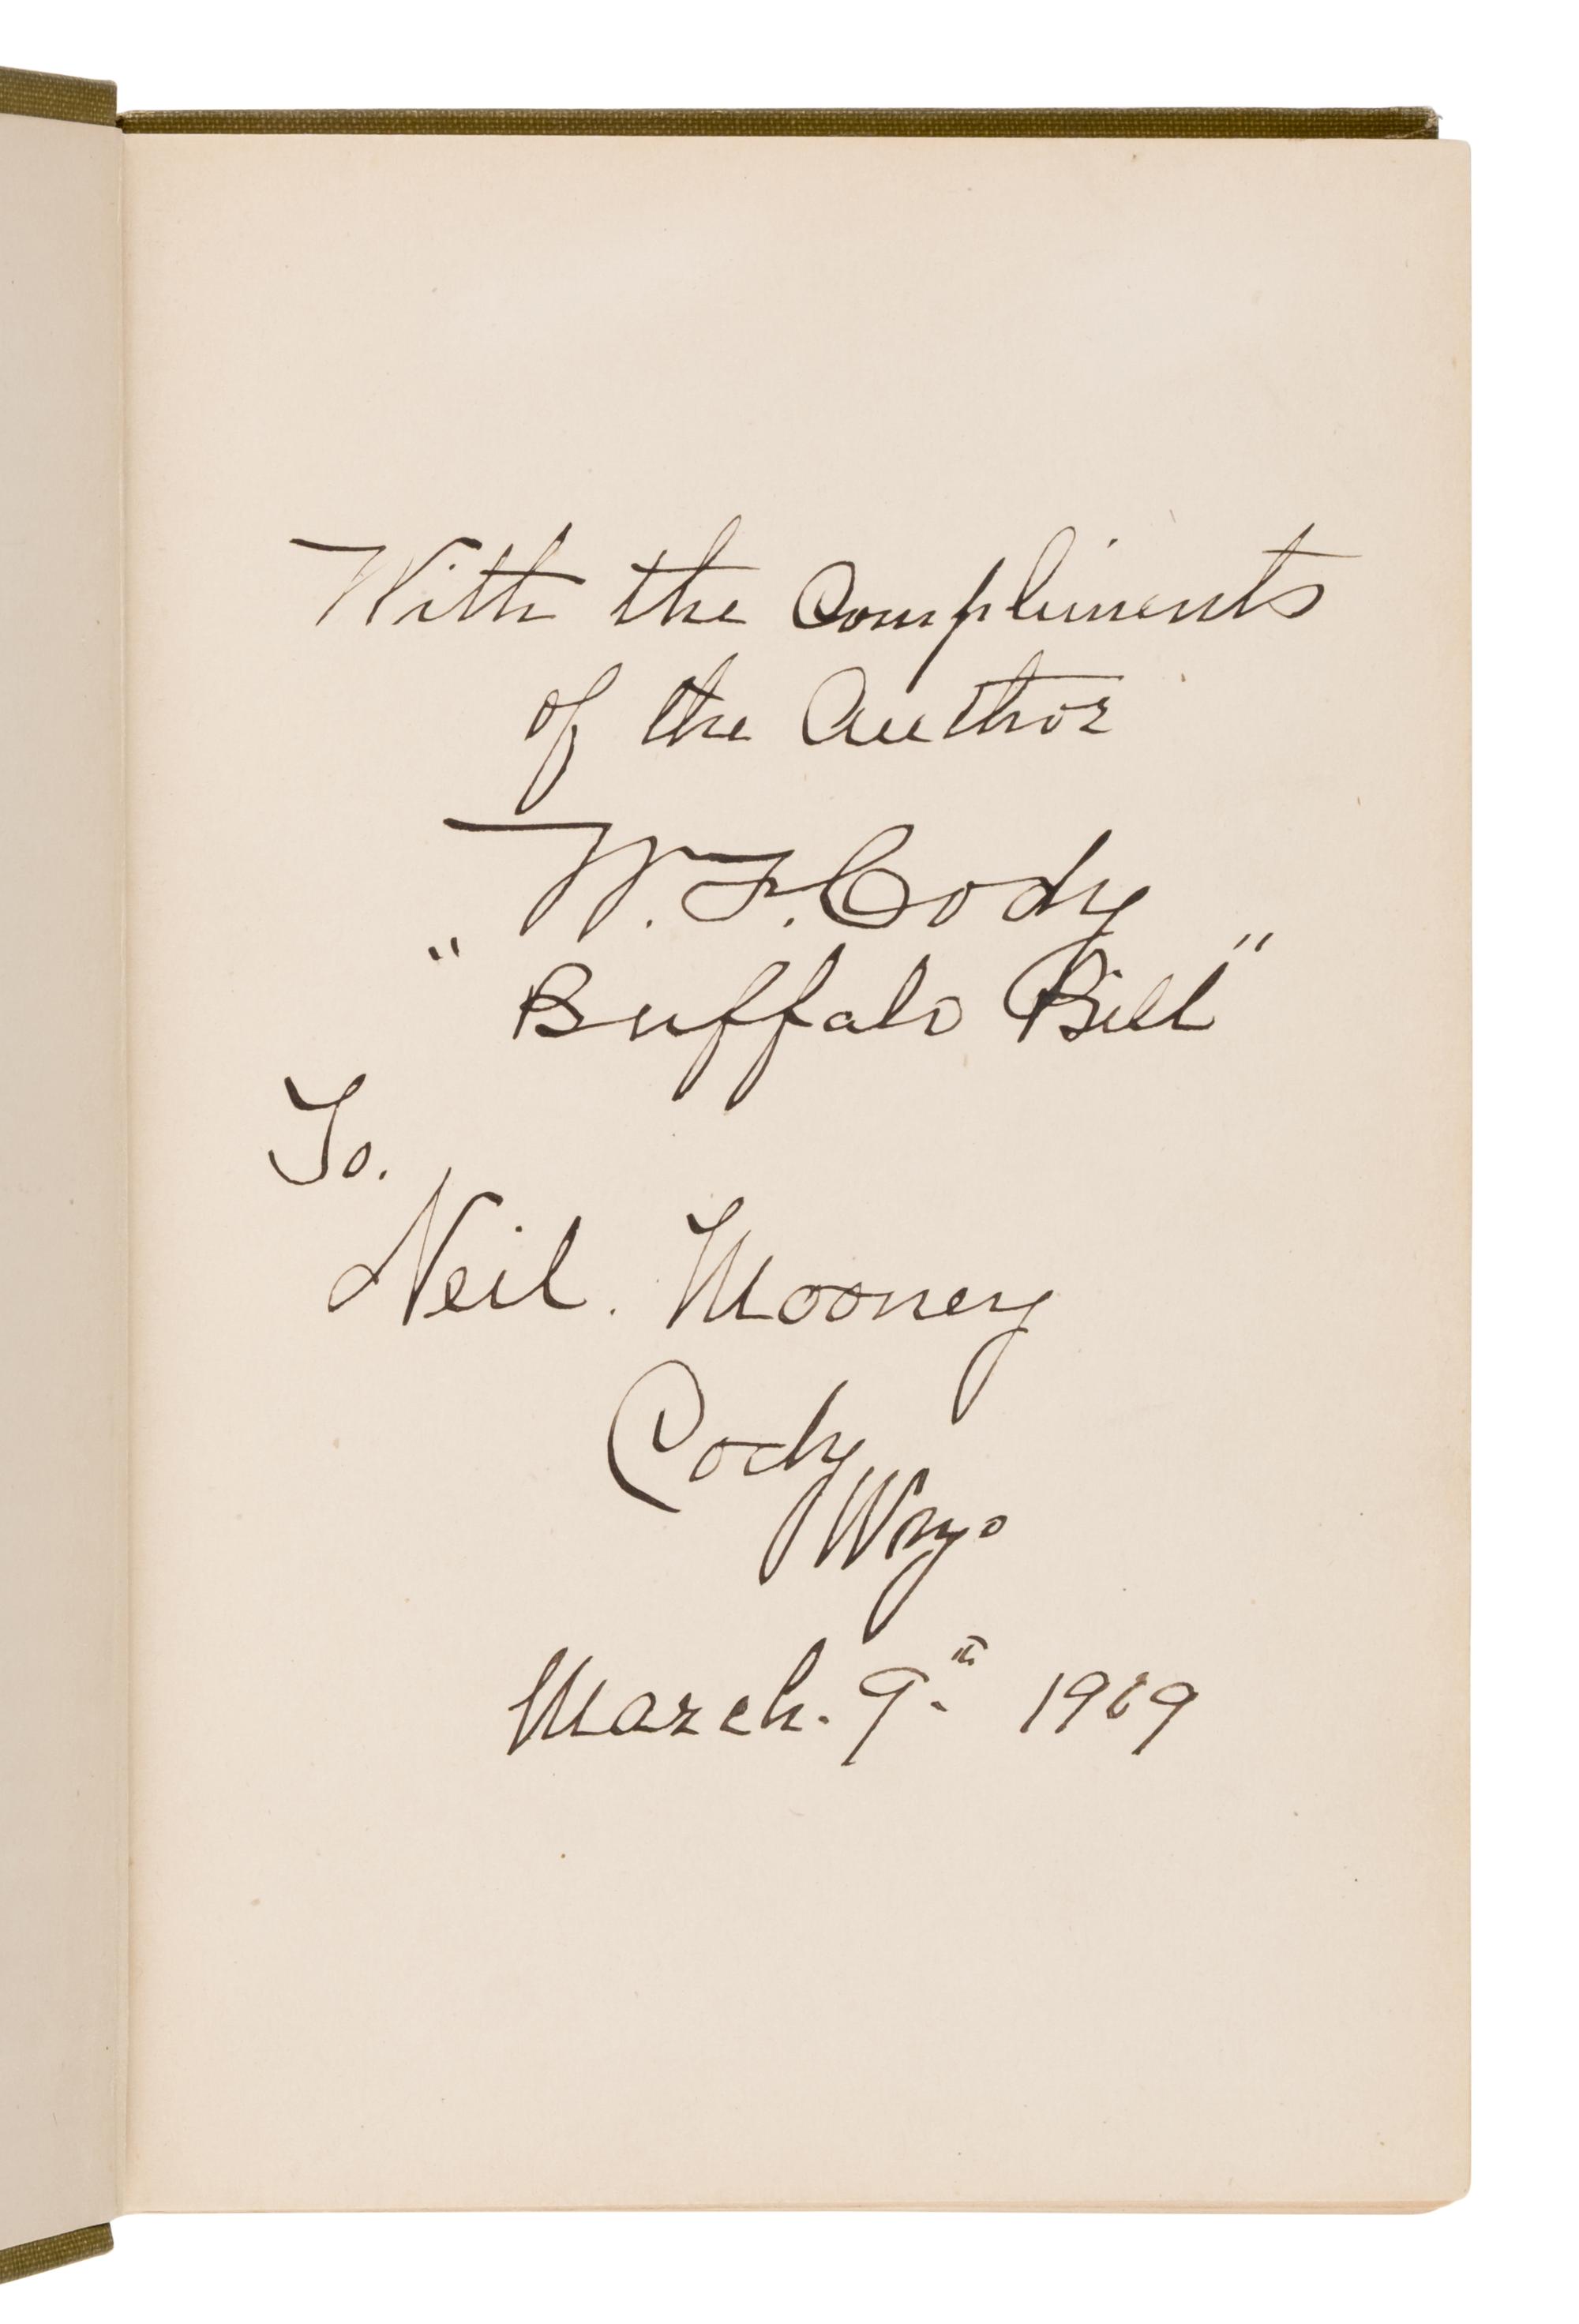 With the Compliments
of the Author
W. F. Cody
"Buffalo Bill"
To.
Neil. Mooney
Cody
Wyo
March. 9th 1909